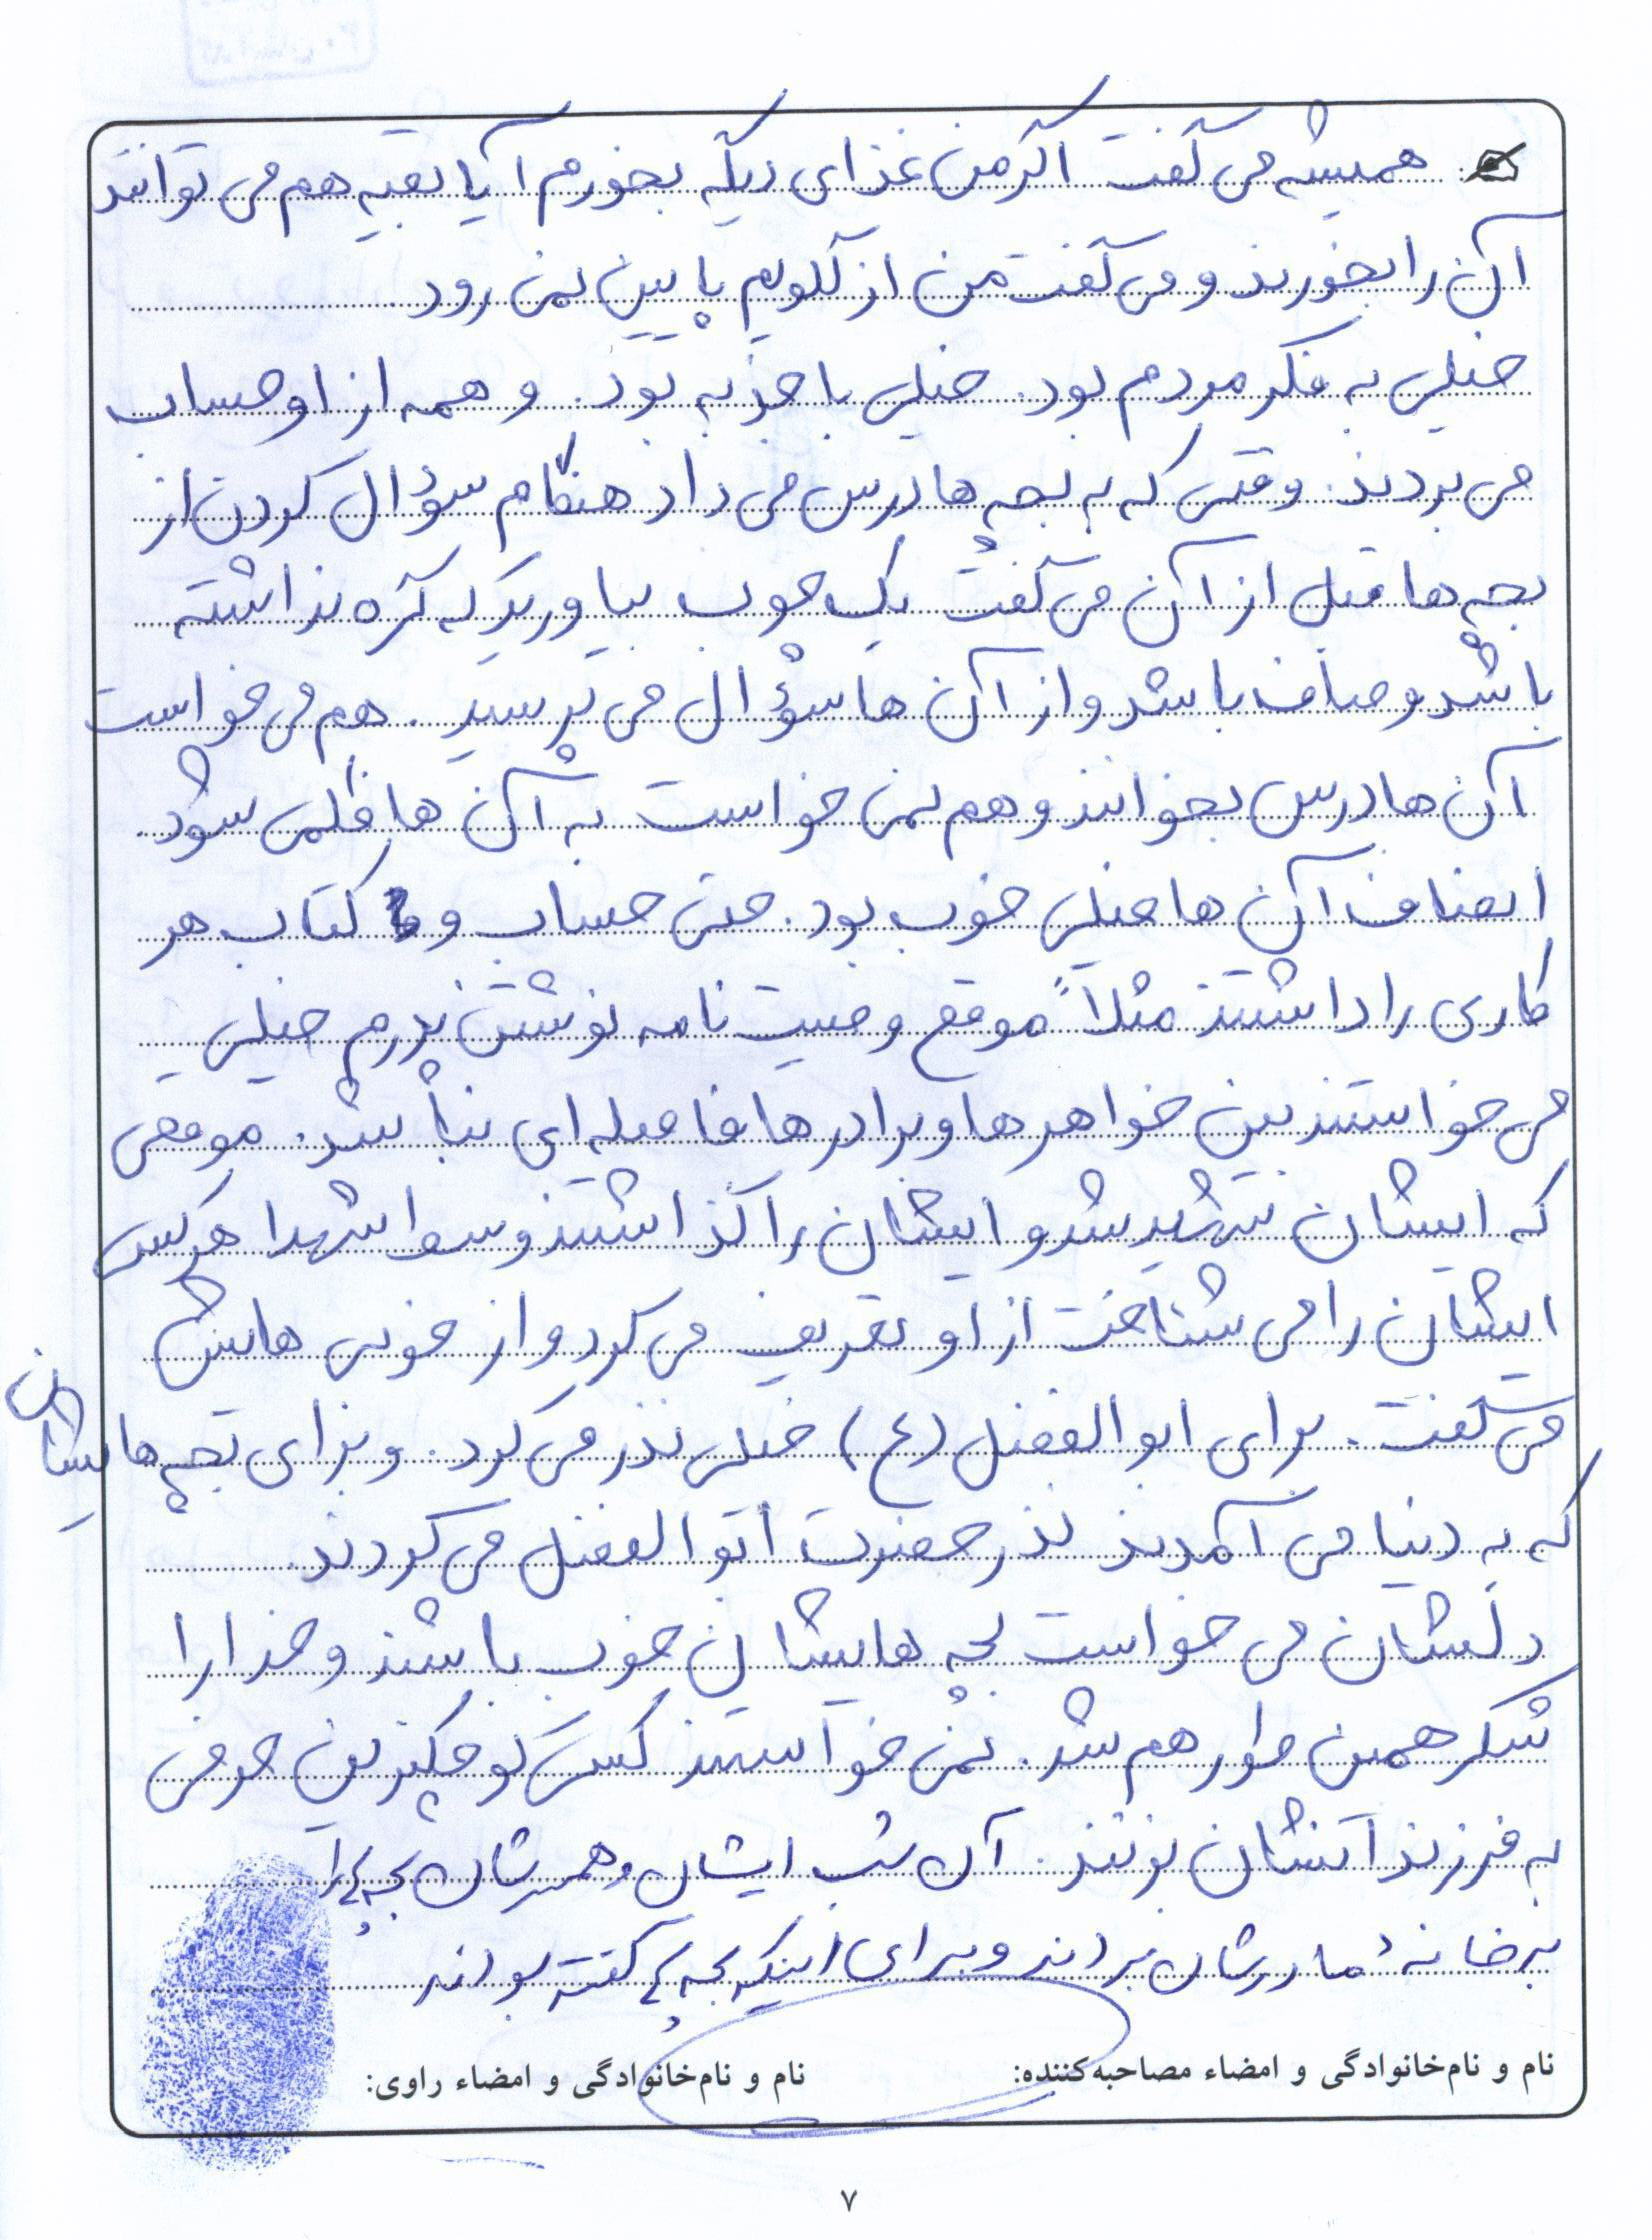 همیشه می گفت اگر من غذای دیگه بخورم آیا بقیه هم می توانند
آن را بخورند و می گفت من از گلویم پایین نمی رود
خیلی به فکر مردم بود. خیلی با جذبه بود. و همه از او حساب
می بردند. وقتی که به بچه ها درس می داد هنگام سؤال کردن از
بچه ها قبل از آن می گفت یک چوب بیاورید که گره نداشته
باشد و صاف باشد و از آن ها سؤال می پرسید. هم می خواست
آن ها درس بخوانند و هم نمی خواست به آن ها ظلمی شود
انصاف آن ها خیلی خوب بود. حتی حساب و کتاب هر
کاری را داشتند مثلاً موقع وصیت نامه نوشتن پدرم خیلی
می خواستند بین خواهرها و برادرها فاصله ای نباشد. موقعی
که ایشان شهید شد و ایشان را گذاشتند وسط شهدا هرکس
ایشان را می شناخت از او تعریف می کرد و از خوبی هایش
می گفت. برای ابوالفضل (ع) خیلی نذر می کرد. و برای بچه هایشان
که به دنیا می آمدند نذر حضرت ابوالفضل می کردند.
دلشان می خواست بچه هایشان خوب باشند و خدا را
شکر همین طور هم شد. نمی خواستند کسی کوچکترین حرفی
به فرزندانشان بزنند. آن شب ایشان و همسرشان بچه ها را
به خانهٔ مادرشان بردند و برای اینکه بچه ها گفته بودند
نام و نام‌خانوادگی و امضاء مصاحبه‌کننده: نام و نام‌خانوادگی و امضاء راوی:
۷